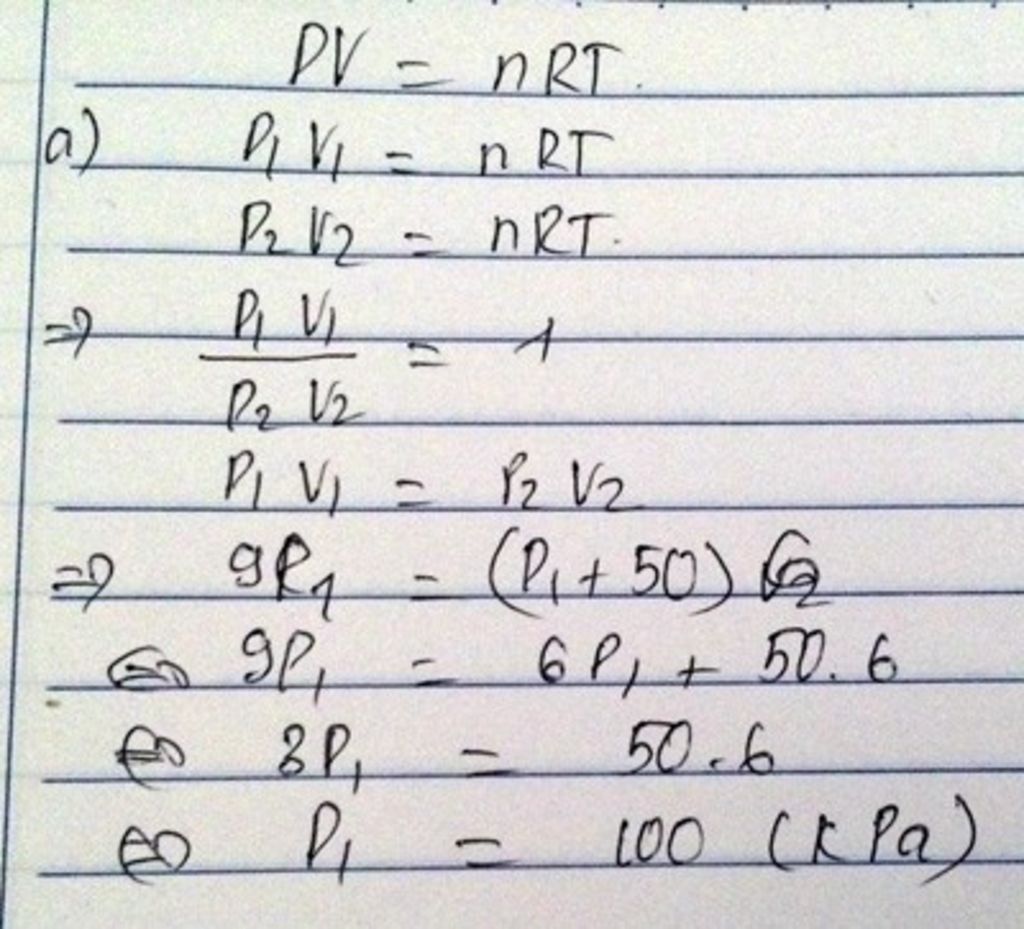 PV = nRT.
a) P₁ V₁ = nRT
P₂ V₂ = nRT.
=> P₁ V₁
/ P₂ V₂ = 1
P₁ V₁ = P₂ V₂
=> 9P₁ = (P₁ + 50)
<=> 9P₁ = 6P₁ + 50.6
<=> 3P₁ = 50.6
<=> P₁ = 100 (kPa)